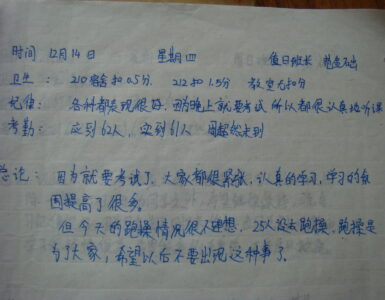 时间 12月14日 星期四 值日班长
卫生: 210宿舍扣0.5分. 212扣1.5分 教室无扣分
纪律: 各科都表现很好. 因为晚上就要考试 所以都很认真地听课
考勤: 应到62人, 实到61人 未到
总论: 因为就要考试了, 大家都很紧张, 认真的学习, 学习的氛
围提高了很多。
但今天的跑操情况很不理想, 25人没去跑操, 跑操是
为了大家, 希望以后不要出现这种事了。